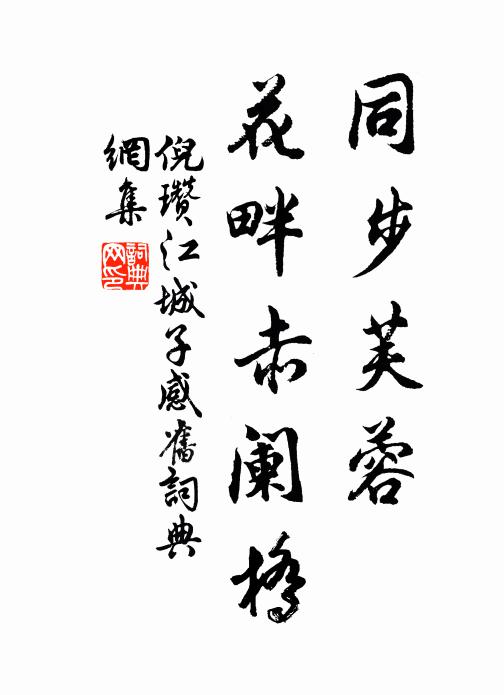 同步芙蓉
花畔赤阑橋
倪瓚江城子感舊詞典
網集
詞典
网印